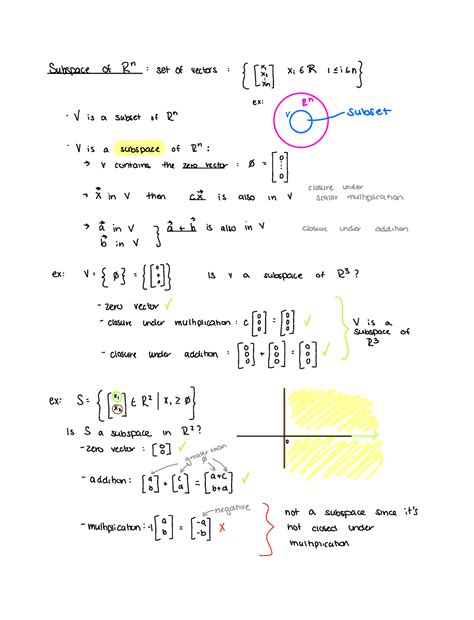 Subspace of ℝⁿ : set of vectors : { [x₁ x₂ ⋮ xₙ] xᵢ ∈ ℝ 1 ≤ i ≤ n }
ex:
ℝⁿ
V
subset
· V is a subset of ℝⁿ
· V is a subspace of ℝⁿ :
→ V contains the zero vector : 0 = [0 ⋮ 0]
→ x⃗ in V then cx⃗ is also in V
closure under
scalar multiplication
→ a⃗ in V } a⃗ + b⃗ is also in V closure under addition
b⃗ in V
ex: V = { 0 } = { [0 0 0] } Is V a subspace of ℝ³ ?
- zero vector ✓
- closure under multiplication : c [0 0 0] = [0 0 0] ✓
- closure under addition : [0 0 0] + [0 0 0] = [0 0 0] ✓
} V is a
subspace of
ℝ³
ex: S = { [x₁ x₂] ∈ ℝ² | x₁ ≥ 0 }
0
Is S a subspace in ℝ² ?
- zero vector : [0 0] ✓
greater than
0
- addition : [a b] + [c a] = [a+c b+a] ✓
negative
- multiplication : -1 [a b] = [-a -b] ✗
} not a subspace since it's
not closed under
multiplication